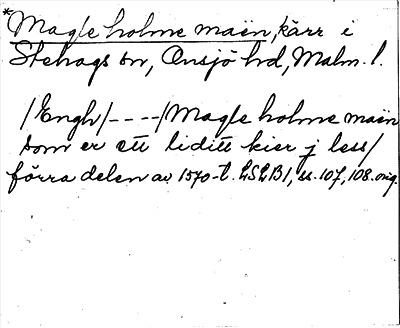 *Magle holme maën, kärr i
Stehags sn, Onsjö hd, Malm. l.
/Engh/----/Magle holme maën
som er ett liditt kier j less/
förra delen av 1570-t. LSLB1, ss. 107, 108. orig.